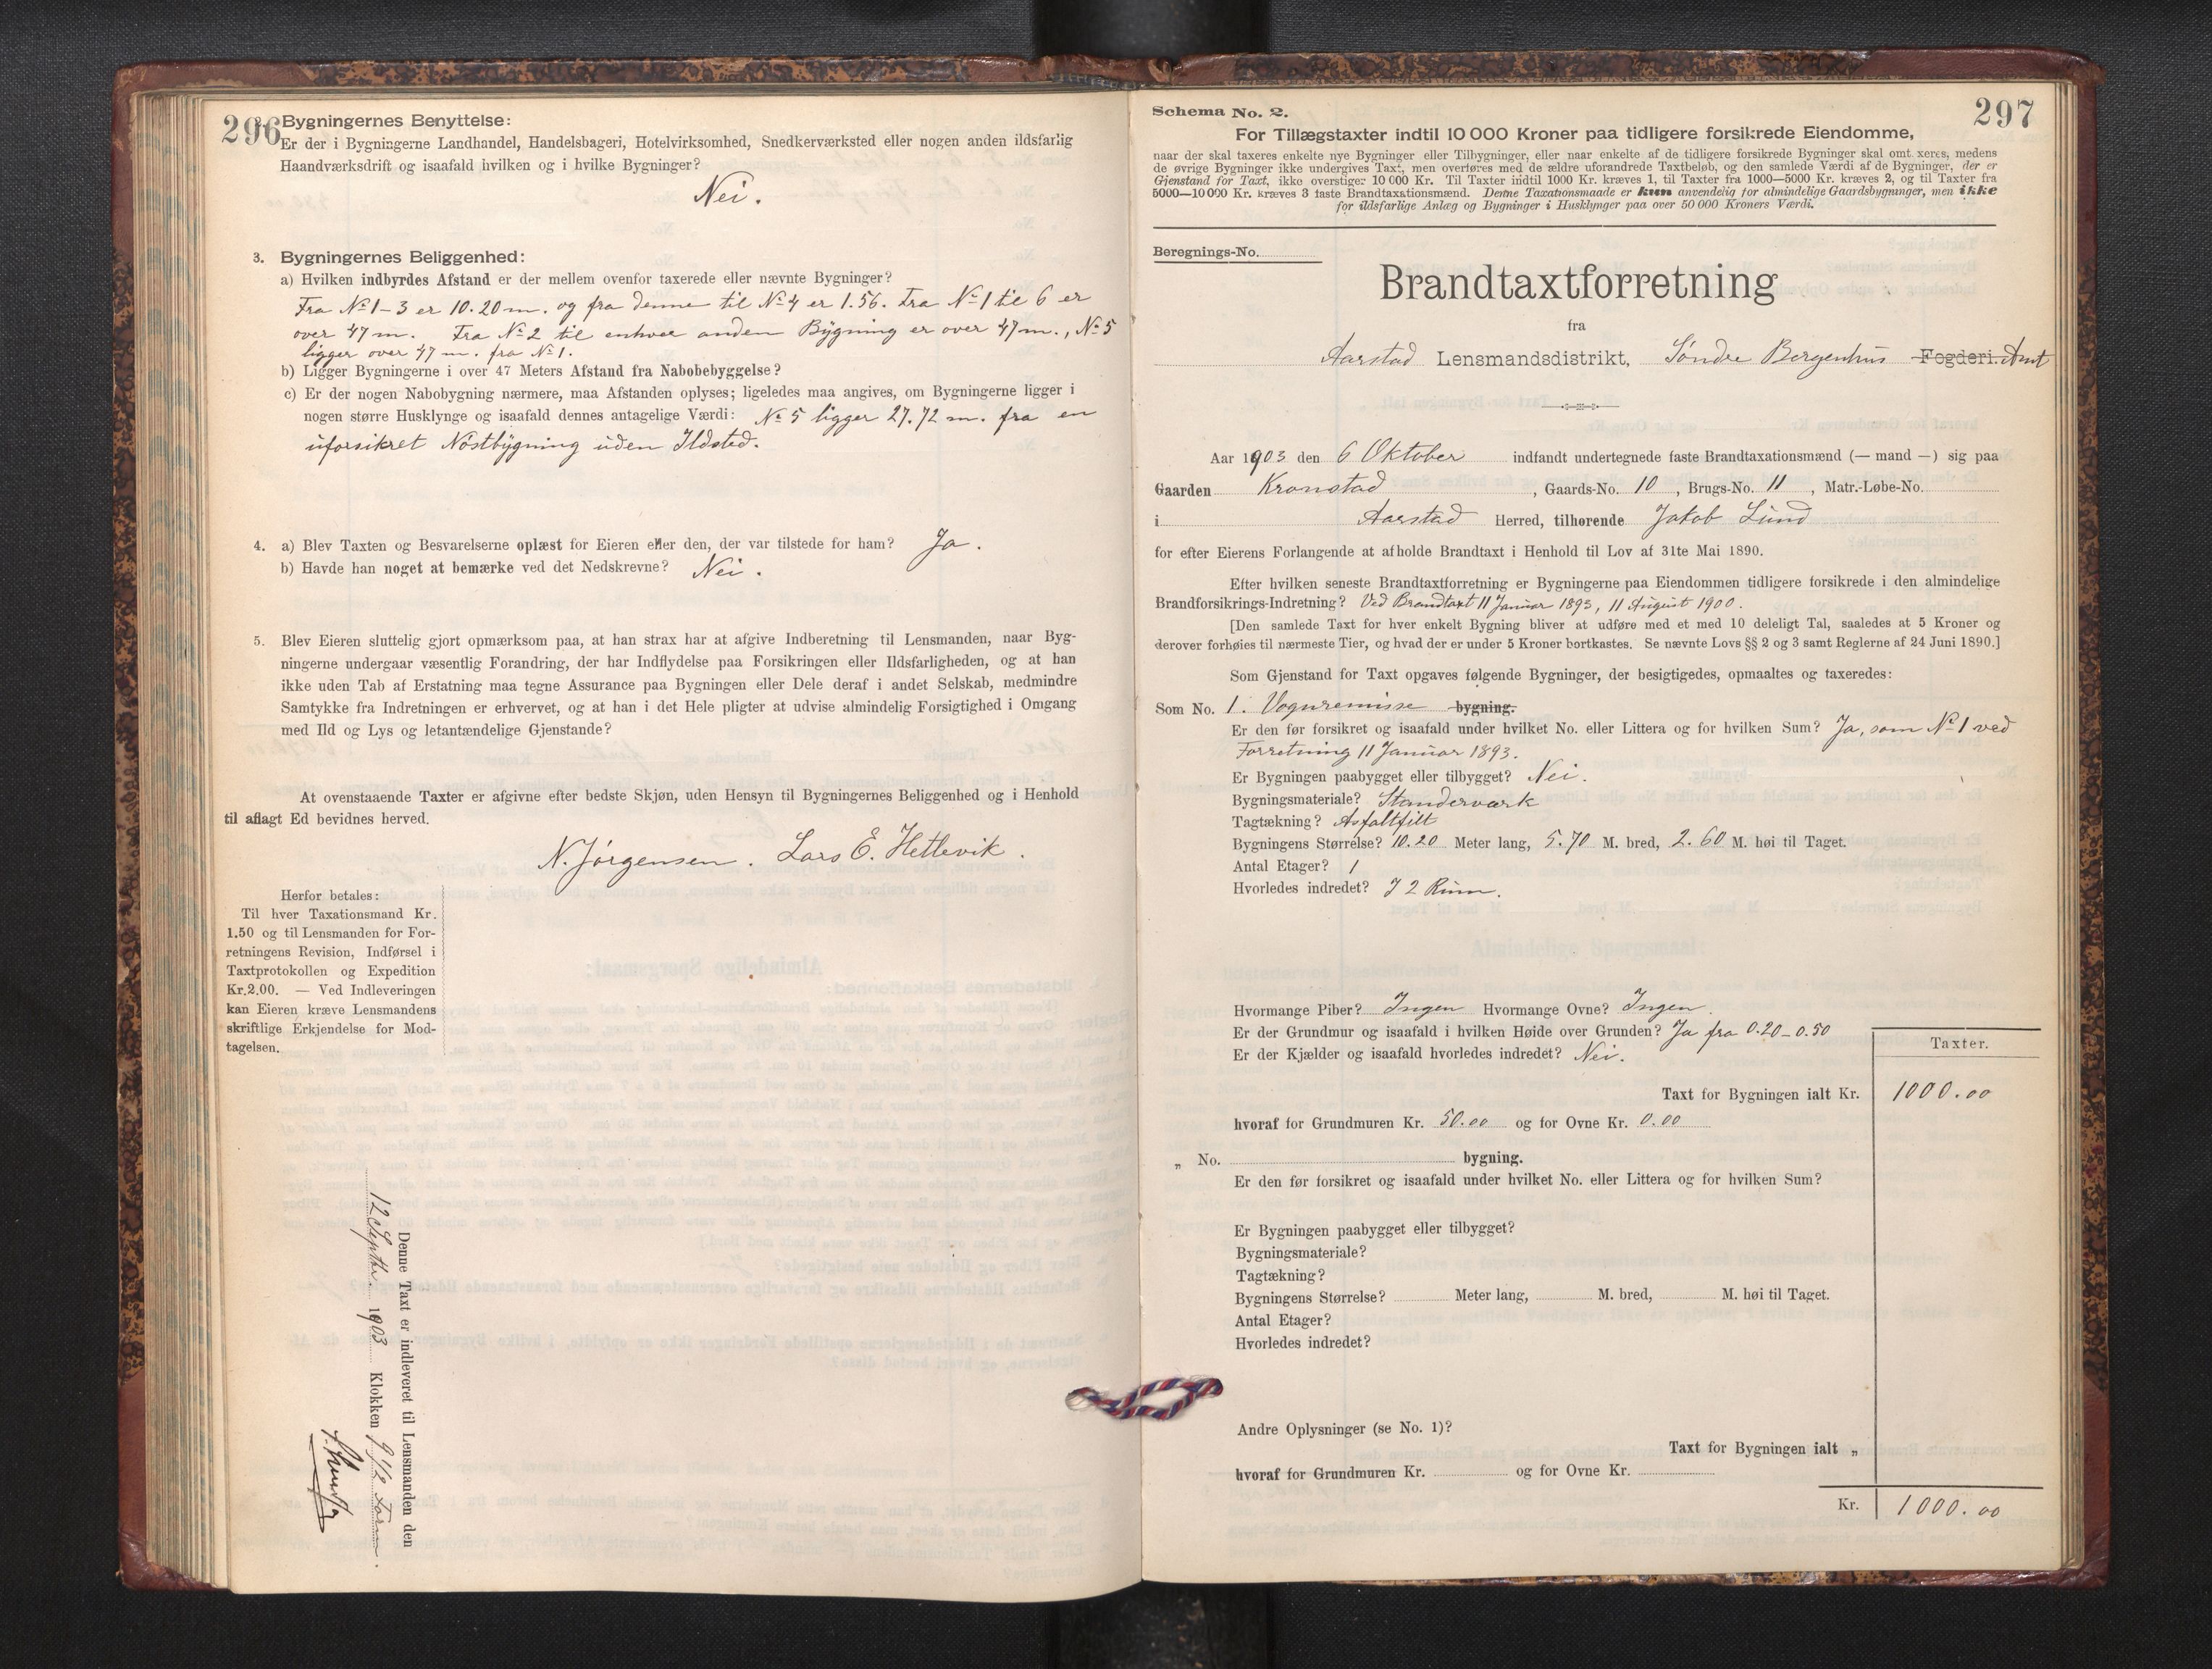 296
Bygningernes Benyttelse:
Er der i Bygningerne Landhandel, Handelsbageri, Hotelvirksomhed, Snedkerværksted eller nogen anden ildsfarlig
Haandværksdrift og isaafald hvilken og i hvilke Bygninger?
Nei.
3. Bygningernes Beliggenhed:
a) Hvilken indbyrdes Afstand er der mellem ovenfor taxerede eller nævnte Bygninger?
Fra No 1-3 er 10.20 m. og fra denne til No 4 er 1.56. Fra No 1 til 6 er
over 47 m. Fra No 2 til enhver anden Bygning er over 47 m., No 5
ligger over 47 m. fra No 1.
b) Ligger Bygningerne i over 47 Meters Afstand fra Nabobebyggelse?
c) Er der nogen Nabobygning nærmere, maa Afstanden oplyses; ligeledes maa angives, om Bygningerne ligger i
nogen større Husklynge og isaafald dennes antagelige Værdi: No 5 ligger 27.72 m. fra en
uforsikret Nöstbygning uden Ildsted.
4. a) Blev Taxten og Besvarelserne oplæst for Eieren eller den, der var tilstede for ham? Ja.
b) Havde han noget at bemærke ved det Nedskrevne? Nei.
5. Blev Eieren sluttelig gjort opmærksom paa, at han strax har at afgive Indberetning til Lensmanden, naar Byg-
ningerne undergaar væsentlig Forandring, der har Indflydelse paa Forsikringen eller Ildsfarligheden, og at han
ikke uden Tab af Erstatning maa tegne Assurance paa Bygningen eller Dele deraf i andet Selskab, medmindre
Samtykke fra Indretningen er erhvervet, og at han i det Hele pligter at udvise almindelig Forsigtighed i Omgang
med Ild og Lys og letantændelige Gjenstande?
At ovenstaaende Taxter er afgivne efter bedste Skjøn, uden Hensyn til Bygningernes Beliggenhed og i Henhold
til aflagt Ed bevidnes herved.
N. Jörgensen. Lars E. Hettevik.
Herfor betales:
Til hver Taxationsmand Kr.
1.50 og til Lensmanden for For-
retningens Revision, Indførsel i
Taxtprotokollen og Expedition
Kr.2.00. — Ved Indleveringen
kan Eieren kræve Lensmandens
skriftlige Erkjendelse for Mod-
tagelsen.
Denne Taxt er indleveret til Lensmanden den
12 Septbr 1903 Klokken 9 1/2 Form.
297
Schema No. 2.
For Tillægstaxter indtil 10 000 Kroner paa tidligere forsikrede Eiendomme,
naar der skal taxeres enkelte nye Bygninger eller Tilbygninger, eller naar enkelte af de tidligere forsikrede Bygninger skal omt xeres, medens
de øvrige Bygninger ikke undergives Taxt, men overføres med de ældre uforandrede Taxtbeløb, og den samlede Værdi af de Bygninger, der er
Gjenstand for Taxt, ikke overstiger 10 000 Kr. Til Taxter indtil 1000 Kr. kræves 1, til Taxter fra 1000—5000 Kr. kræves 2, og til Taxter fra
5000—10 000 Kr. kræves 3 faste Brandtaxationsmænd. Denne Taxationsmaade er kun anvendelig for almindelige Gaardsbygninger, men ikke
for ildsfarlige Anlæg og Bygninger i Husklynger paa over 50 000 Kroners Værdi.
Beregnings-No.
Brandtaxtforretning
fra
Aarstad Lensmandsdistrikt, Söndre Bergenhus Fogderi. Amt
Aar 1903 den 6 Oktober indfandt undertegnede faste Brandtaxationsmænd (— mand —) sig paa
Gaarden Kronstad, Gaards-No. 10, Brugs-No. 11, Matr.-Løbe-No.
i Aarstad Herred, tilhørende Jakob Lund
for efter Eierens Forlangende at afholde Brandtaxt i Henhold til Lov af 31te Mai 1890.
Efter hvilken seneste Brandtaxtforretning er Bygningerne paa Eiendommen tidligere forsikrede i den almindelige
Brandforsikrings-Indretning? Ved Brandtaxt 11 Januar 1893, 11 August 1900.
[Den samlede Taxt for hver enkelt Bygning bliver at udføre med et med 10 deleligt Tal, saaledes at 5 Kroner og
derover forhøies til nærmeste Tier, og hvad der er under 5 Kroner bortkastes. Se nævnte Lovs §§ 2 og 3 samt Reglerne af 24 Juni 1890.]
Som Gjenstand for Taxt opgaves følgende Bygninger, der besigtigedes, opmaaltes og taxeredes:
Som No. 1. Vognremisse bygning.
Er den før forsikret og isaafald under hvilket No. eller Littera og for hvilken Sum? Ja, som No 1 ved
Forretning 11 Januar 1893.
Er Bygningen paabygget eller tilbygget? Nei.
Bygningsmateriale? Standerværk
Tagtækning? Asfaltfilt
Bygningens Størrelse? 10.20 Meter lang, 5.70 M. bred, 2.60 M. høi til Taget.
Antal Etager? 1
Hvorledes indredet? I 2 Rum.
Hvormange Piber? Ingen Hvormange Ovne? Ingen.
Er der Grundmur og isaafald i hvilken Høide over Grunden? Ja fra 0.20-0.50
Er der Kjælder og isaafald hvorledes indredet? Nei.
Taxter.
Taxt for Bygningen ialt Kr. 1000.00
hvoraf for Grundmuren Kr. 50.00 og for Ovne Kr. 0.00
„ No. bygning.
Er den før forsikret og isaafald under hvilket No. eller Littera og for hvilken Sum?
Er Bygningen paabygget eller tilbygget?
Bygningsmateriale?
Tagtækning?
Bygningens Størrelse? Meter lang, M. bred, M. høi til Taget.
Antal Etager?
Hvorledes indredet?
Andre Oplysninger (se No. 1)?
Taxt for Bygningen ialt „
hvoraf for Grundmuren Kr. og for Ovne Kr.
Kr. 1000.00